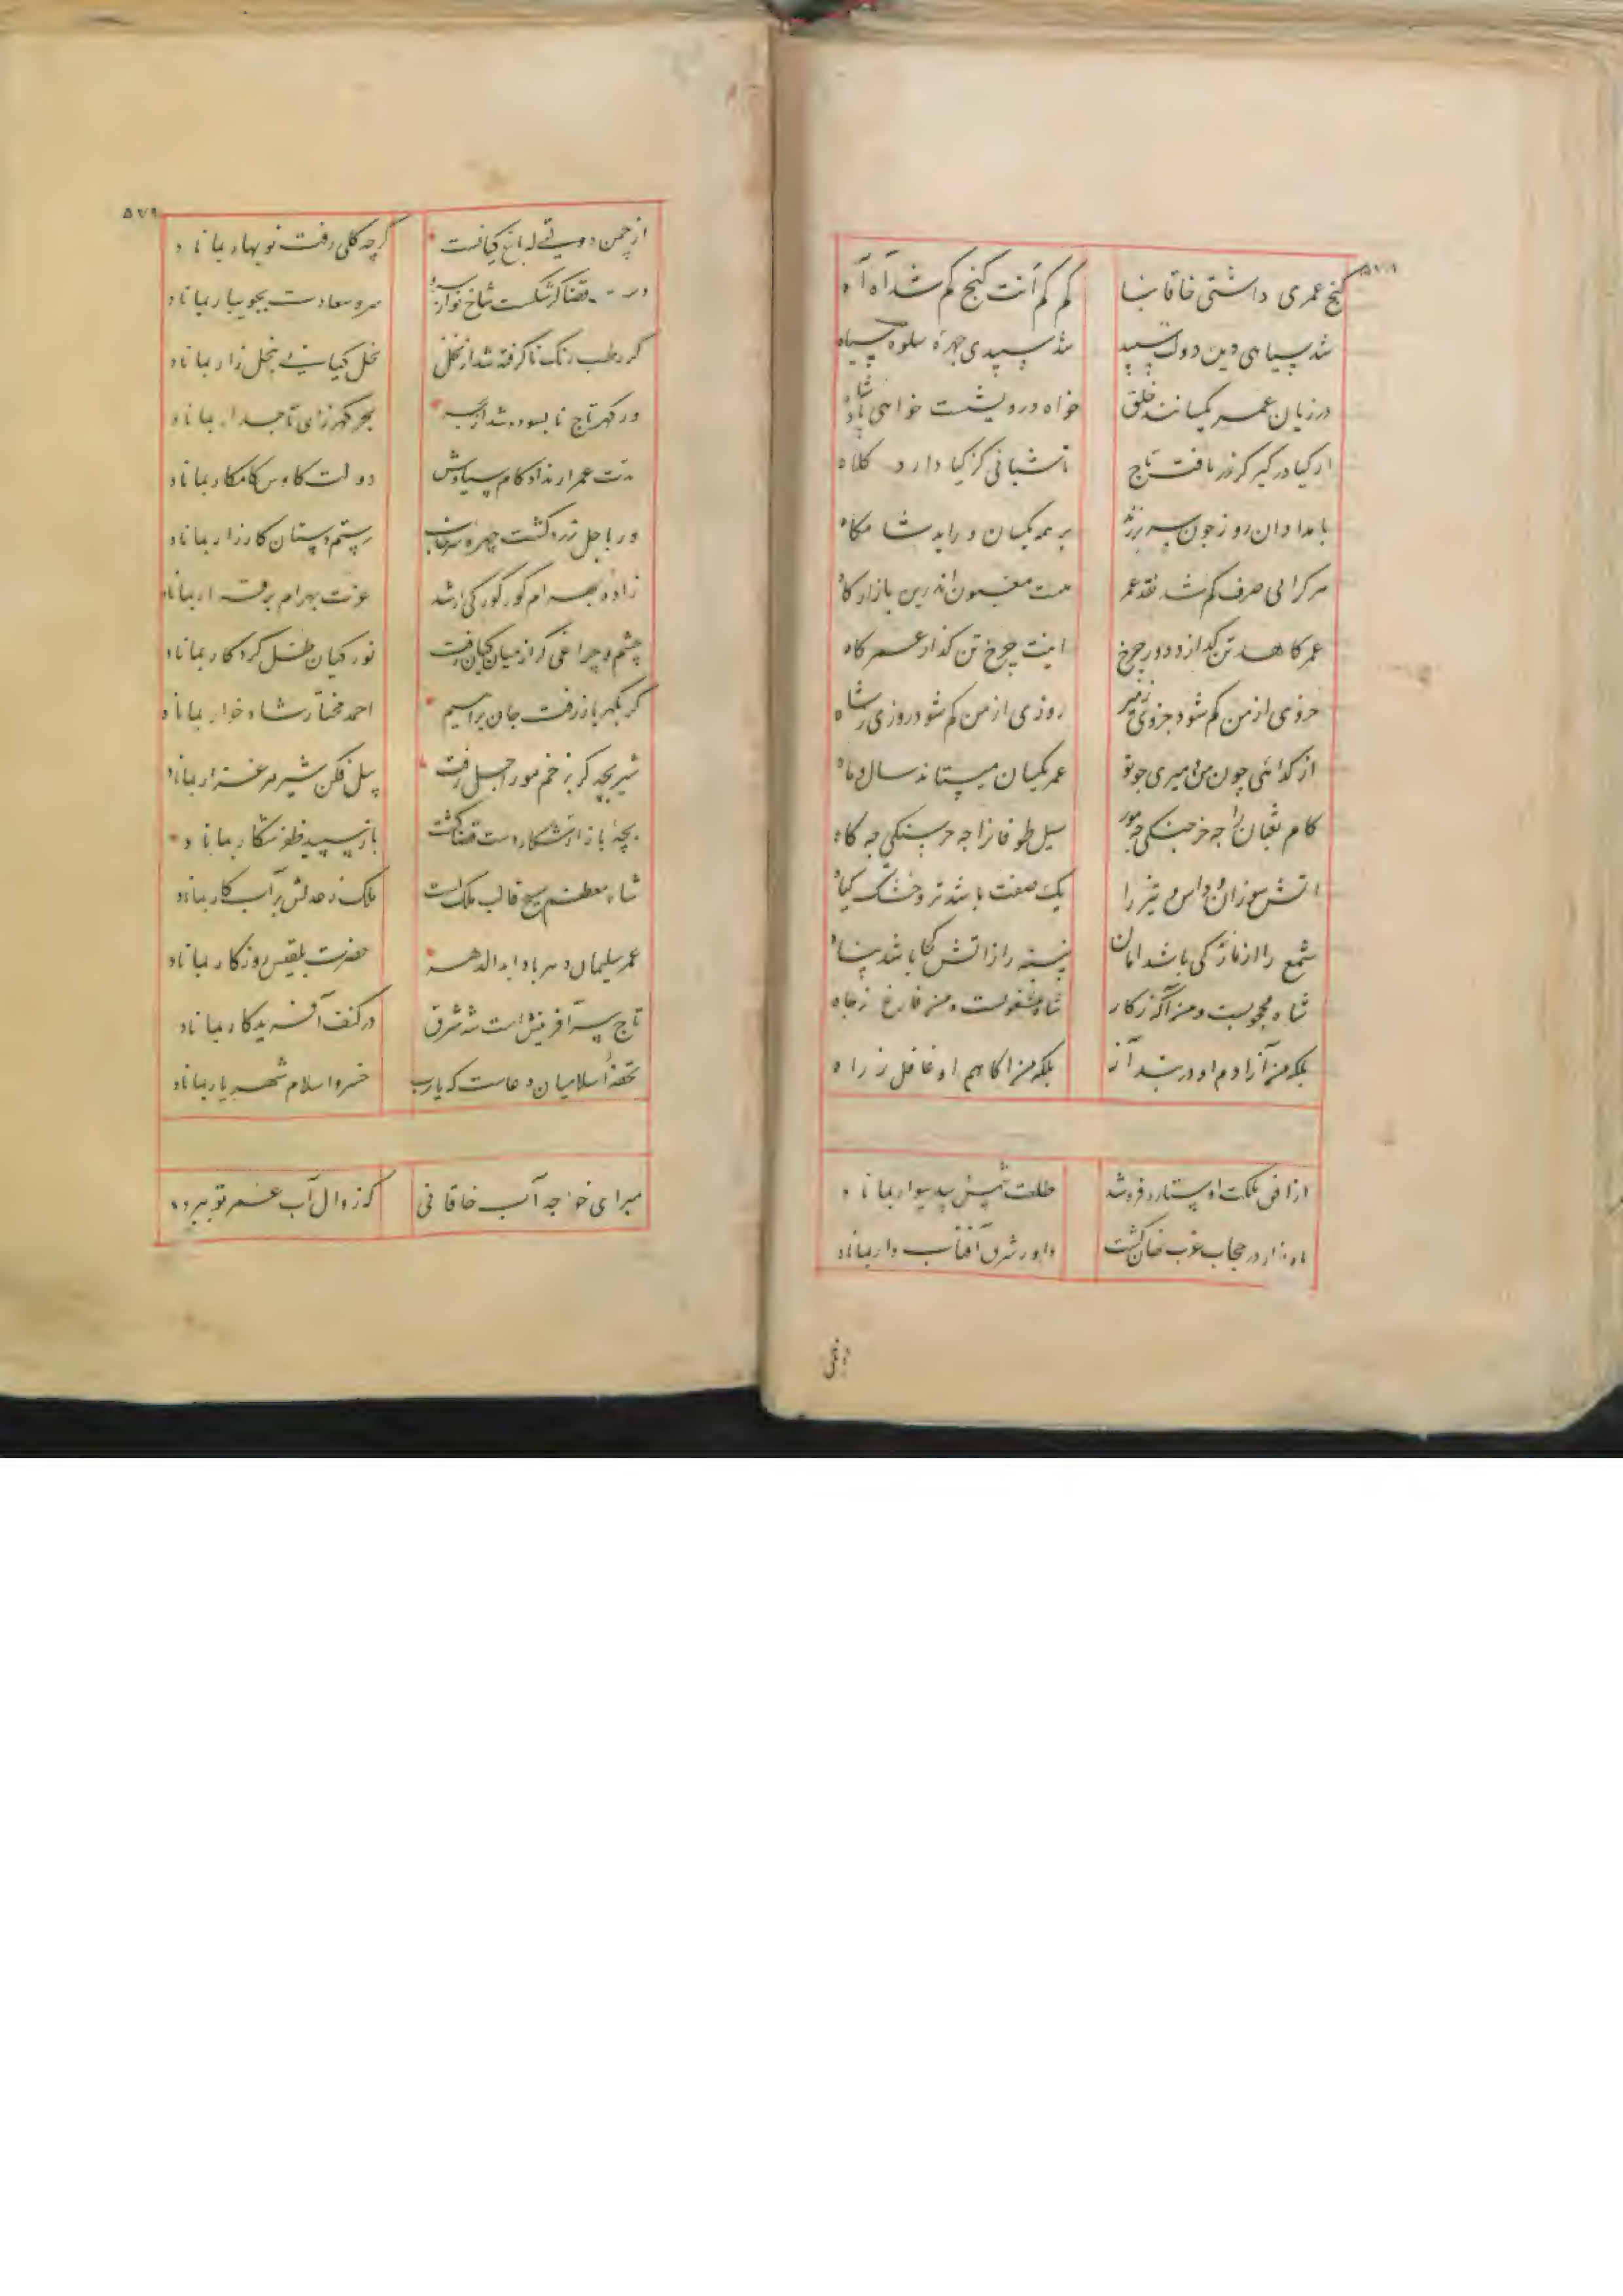 ۵۷۸
گنج عمری داشتی خاقانیا کم کم آنت گنج کم شد آه آه
شد سیاهی دین دولت سپید شد سپیدی چهره سلوة سیاه
در زیان عمر یکسانند خلق خواه درویشست خواهی پادشاه
ار کیا در گیر کز زر یافت تاج تا شبانی کز گیا دارد کلاه
بامدادان روز چون سر برزند بر همه یکسان در آید شامگاه
هر کرا بی صرف کم شد نقد عمر هست مغبون اندرین بازارگاه
عمر کاهد تن گدازد دور چرخ اینت چرخ تن گداز عمر کاه
جزوی از من کم شود جزوی ز میر روزی از من کم شود روزی ز شاه
از گدائی چون من و میری چو تو عمر یکسان میستاند سال و ماه
کام ثعبان را چه خرچنگی چه مور سیل طوفانرا چه خرسنگی چه کاه
آتش سوزان و داس تیز را یک صفت باشد تر و خشک گیاه
شمع را از گاز کی باشد امان پنبه را ز آتش کجا باشد پناه
شاه محجوبست و من آگه ز کار شاه مشغولست و من فارغ ز جاه
بلکه من آزادم او در بند آز بلکه من آگاهم او غافل ز راه
از افق ملکت او ستاره فروشد طلعت شمس پدیدار بماناد
ماه نو ار در حجاب غرب نهان گشت داور شرق آفتاب وار بماناد
ازافق
۵۷۹
از چمن دولتی باغ کیانست گرچه گلی رفت نوبهار بماناد
قضا گر شکست شاخ نو از سرو سرو سعادت بجویبار بماناد
گر رطب رنگ ناگرفته شد از نخل نخل کیانی بنخل زار بماناد
ور گهر تاج نابسوده شد از بحر بحر گهرزای تاجدار بماناد
مدت عمر ار نداد کام سیاوش دولت کاوس کامکار بماناد
ور باجل زرد گشت چهره سهراب رستم دستان کارزار بماناد
زاده بهرام گور گور گر ارشد عزت بهرام برقرار بماناد
چشم و چراغی گر از میان کیان رفت نور کیان ظل کردگار بماناد
گر بگهر باز رفت جان براهیم احمد مختار شاد خوار بماناد
شیر بچه گر بزخم مور اجل رفت پیل فکن شیر مرغزار بماناد
بچه باز ار شکار دست قضا گشت باز سپید ظفر شکار بماناد
شاه معظم مسیح قالب ملک است ملک ز عدلش بر آب کار بماناد
عمر سلیمان دهر باد ابد الدهر حضرت بلقیس روزگار بماناد
تاج سر آفرینش است شه شرق در کنف آفریدگار بماناد
تحفه اسلامیان دعاست که یارب خسرو اسلام شهریار بماناد
مبر ای خواجه آب خاقانی که زوال آب عمر تو ببرد